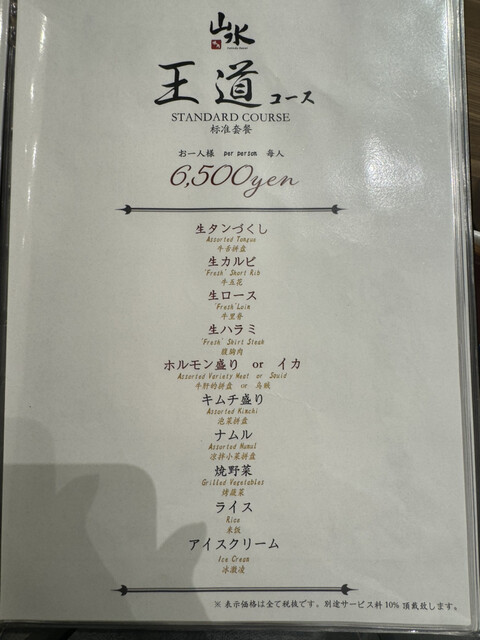 山水
王道コース
STANDARD COURSE
标准套餐
お一人様 per person 每人
6,500yen
生タンづくし
Assorted Tongue
牛舌拼盘
生カルビ
'Fresh' Short Rib
牛五花
生ロース
'Fresh' Loin
牛里脊
生ハラミ
'Fresh' Skirt Steak
腹胸肉
ホルモン盛り or イカ
Assorted Variety Meat or Squid
牛肝的拼盘 or 乌贼
キムチ盛り
Assorted Kimchi
泡菜拼盘
ナムル
Assorted Namul
凉拌小菜拼盘
焼野菜
Grilled Vegetables
烤蔬菜
ライス
Rice
米饭
アイスクリーム
Ice Cream
冰激凌
※ 表示価格は全て税抜です。別途サービス料10% 頂戴致します。